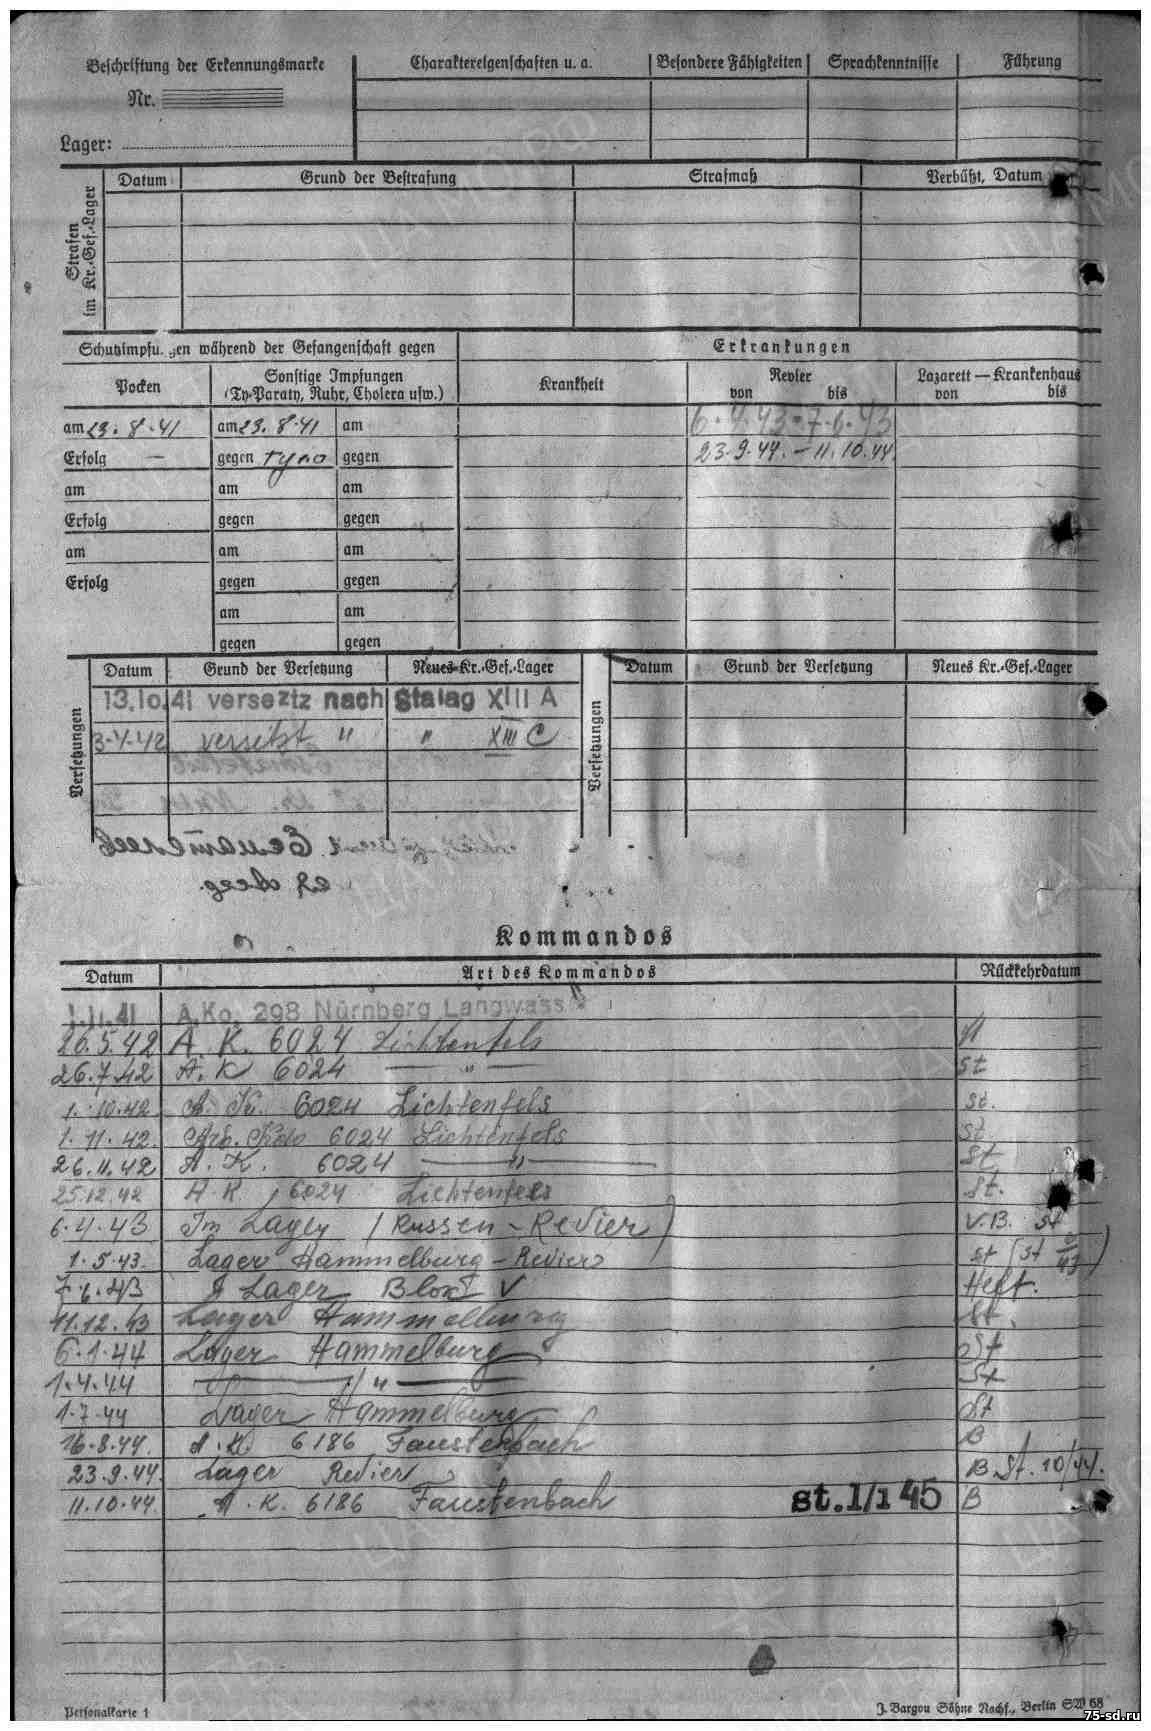 Beschriftung der Erkennungsmarke
Nr.
Lager:
Charaktereigenschaften u. a.
Besondere Fähigkeiten
Sprachkenntnisse
Führung
Strafen im Kr.-Gef.-Lager
Datum
Grund der Bestrafung
Strafmaß
Verbüßt, Datum
Schutzimpfu gen während der Gefangenschaft gegen
Erkrankungen
Pocken
Sonstige Impfungen
(Ty-Paraty, Ruhr, Cholera usw.)
Krankheit
Revier
von bis
Lazarett — Krankenhaus
von bis
am 23.8.41 am 23.8.41 am 6.4.43-7.6.43
Erfolg — gegen gegen 23.9.44.-11.10.44.
am am am
Erfolg gegen gegen
am am am
Erfolg gegen gegen
am am
gegen gegen
Versetzungen
Datum Grund der Versetzung Neues Kr.-Gef.-Lager
13.10.41 verseztz nach Stalag XIII A
3-4-42 versetzt " " XIII C
Versetzungen
Datum Grund der Versetzung Neues Kr.-Gef.-Lager
Kommandos
Datum Art des Kommandos Rückkehrdatum
1.11.41 A.Ko. 298 Nürnberg Langwass
26.5.42 A.K. 6024 Lichtenfels
26.7.42 A.K 6024 — " — st
1.10.42 A.K. 6024 Lichtenfels st.
1.11.42. Arb. Kdo 6024 Lichtenfels st
26.11.42 A.K. 6024 — " — St
25.12.42 A.K. 6024 Lichtenfels St.
6.4.43 Im Lager (Russen-Revier) V.B. st
1.5.43. Lager Hammelburg-Revier st (St
7.6.43 Lager Block V Heft.
11.12.43 Lager Hammelburg St.
6.1.44 Lager Hammelburg St
1.4.44 — " — St
1.7.44 Lager Hammelburg St
16.8.44. A.K. 6186 Faustenbach B
23.9.44. Lager Revier B.St. 10/44.
11.10.44. A.K. 6186 Faustenbach st.1/1 45 B
Personalkarte 1
J. Bargou Söhne Nachf., Berlin SW 68
75-sd.ru